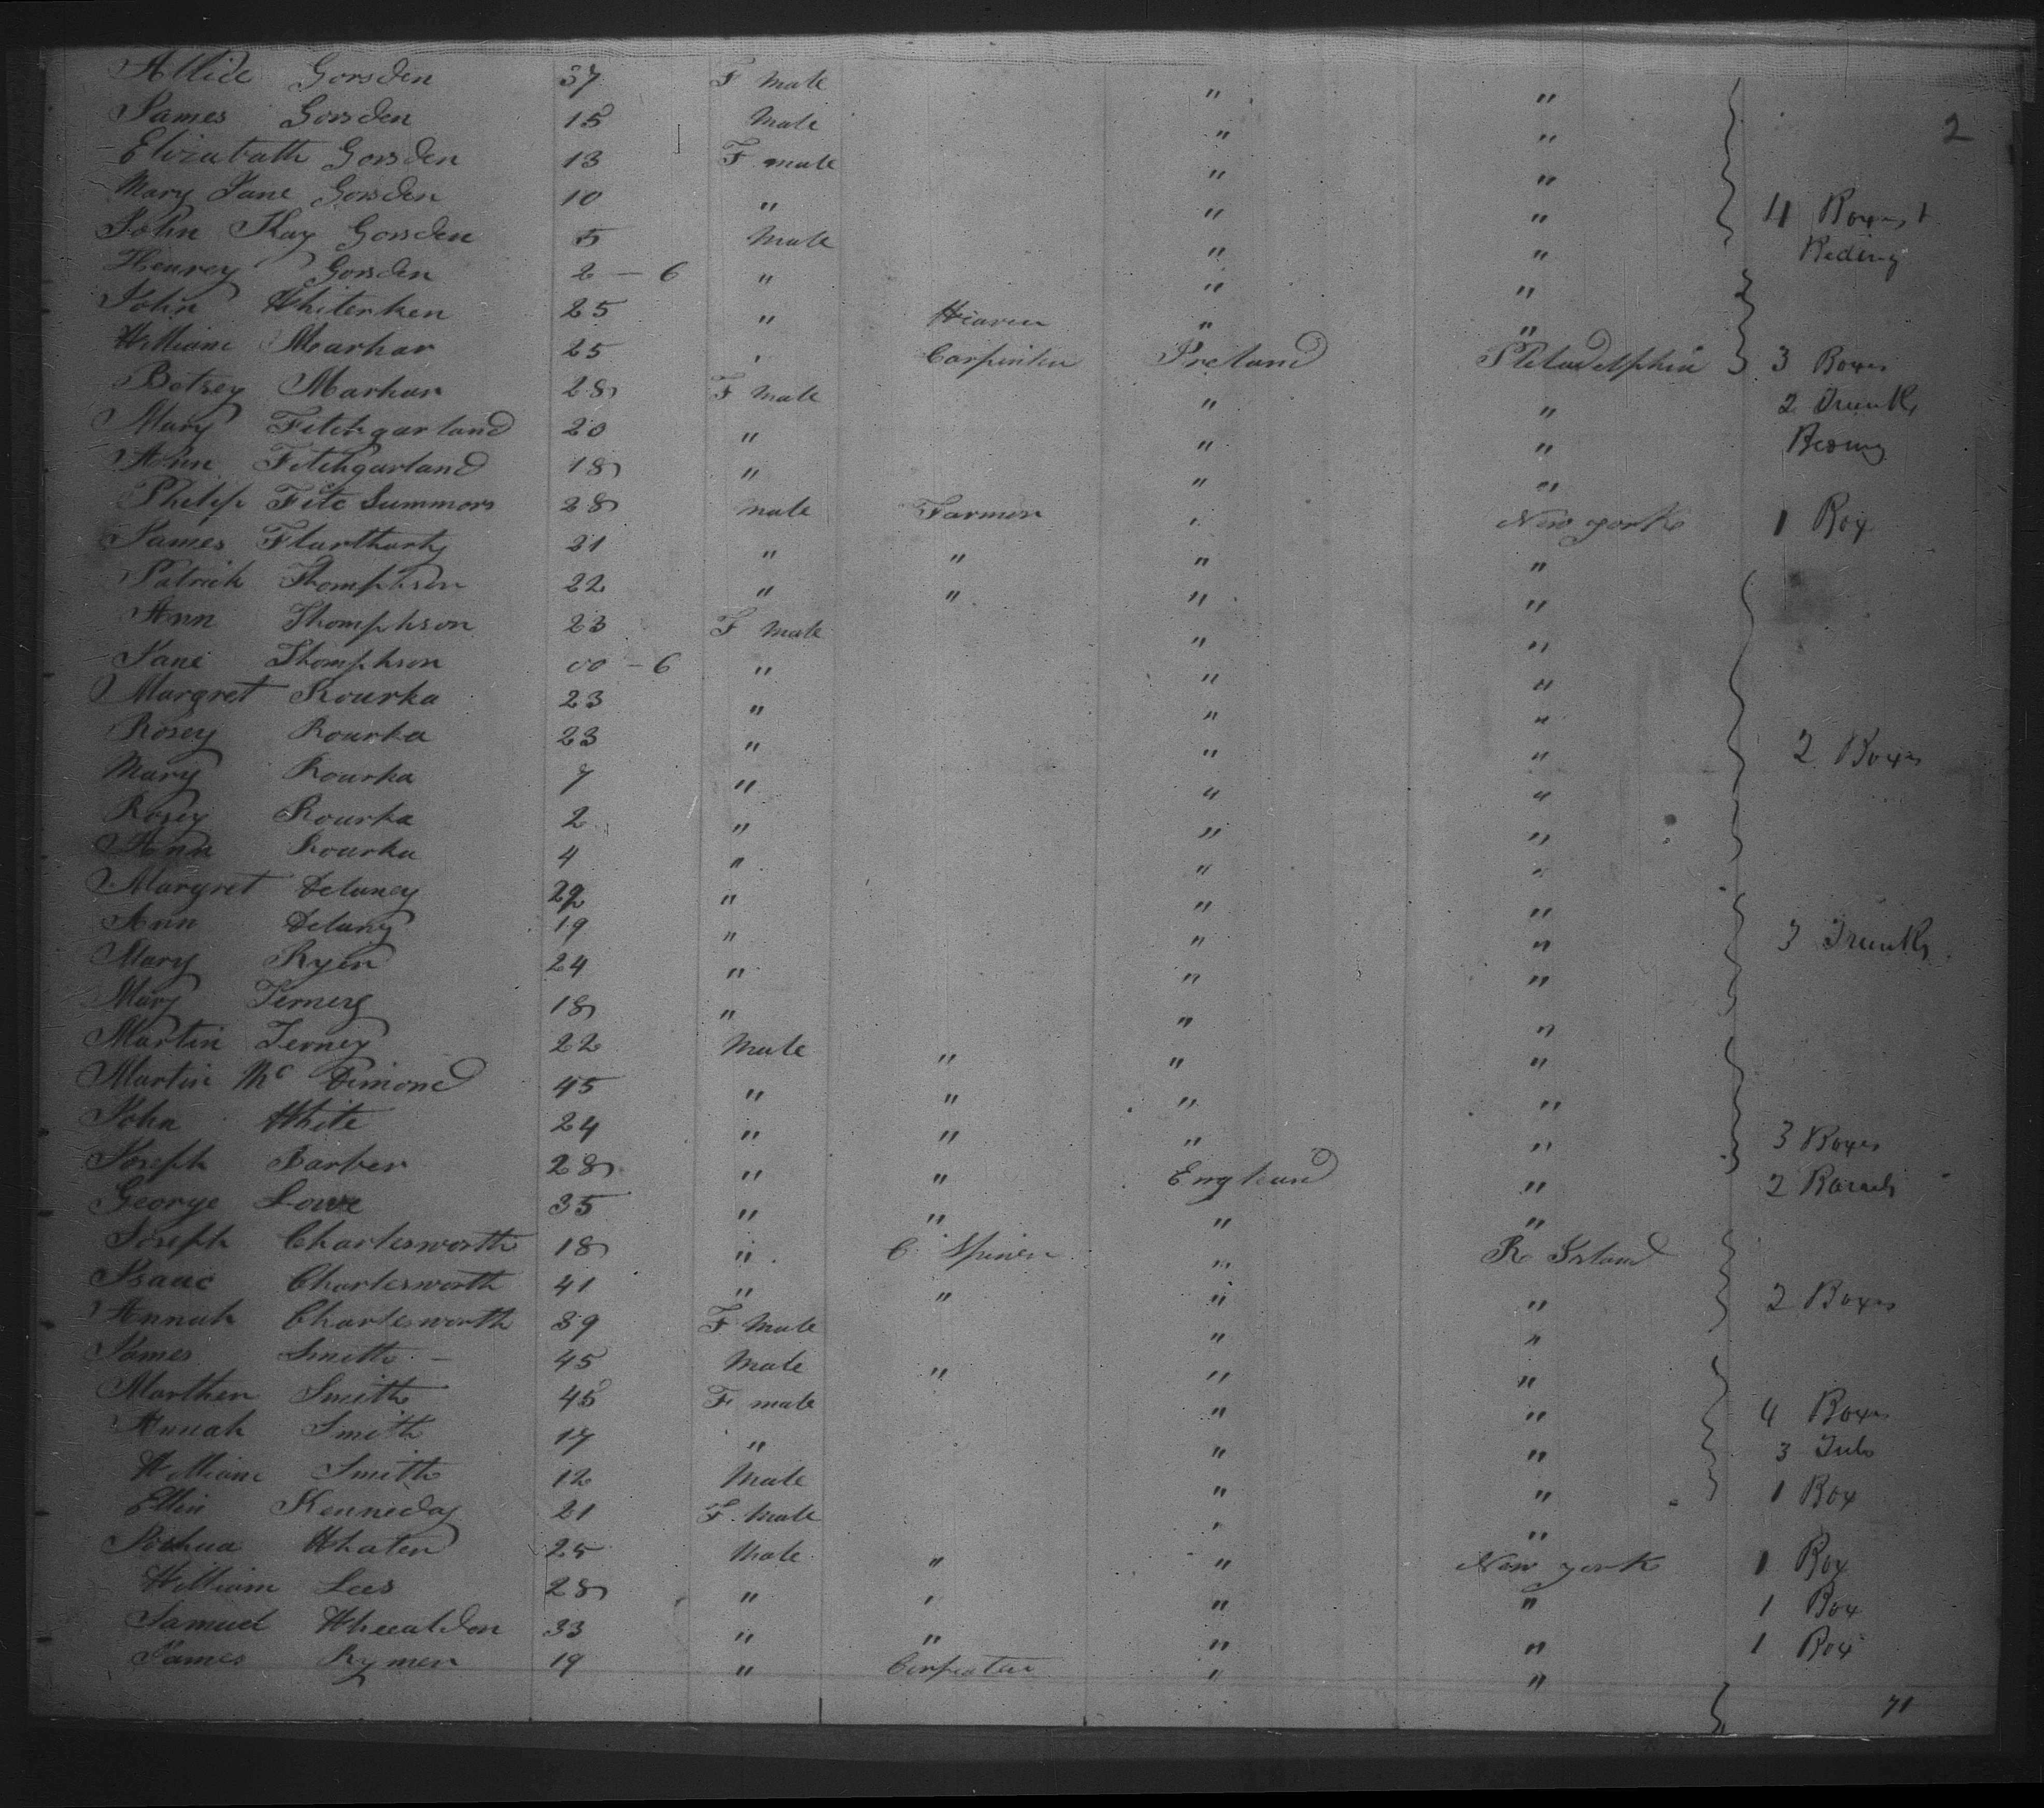 2
Allice Gorsden 37 F Male " "
James Gorsden 15 Male " "
Elizabath Gorsden 13 F male " "
Mary Jane Gorsden 10 " " " 4 Boxes &
John Kay Gorsden 5 Male " " Beding
Henrey Gorsden 2 - 6 " " "
John Whiterken 25 " Weaver " "
William Markar 25 " Carpenter Ireland Philadelphia 3 Boxes
Betsey Markar 28 F Male " " 2 Trunks
Mary Fitchgarland 20 " " " Beding
Ann Fitchgarland 18 " " "
Philip Fitc Summors 28 Male Farmer " New york 1 Box
James Flartharty 21 " " " "
Patrick Thomphson 22 " " " "
Ann Thomphson 23 F Male " "
Jane Thomphson 00 - 6 " " "
Margret Rourka 23 " " "
Rosey Rourka 23 " " " 2 Boxes
Mary Rourka 7 " " "
Rosey Rourka 2 " " "
Ann Rourka 4 " " "
Margret Delaney 22 " " "
Ann Delany 19 " " " 3 Trunks
Mary Ryen 24 " " "
Mary Terney 18 " " "
Martin Terney 22 Male " " "
Martin Mc Dimond 45 " " " "
John White 24 " " " " 3 Boxes
Joseph Barber 28 " " England " 2 Barrels
George Lowe 35 " " " "
Joseph Charlesworth 18 " C Spiner " R Island
Isaac Charlesworth 41 " " " " 2 Boxes
Annah Charlesworth 39 F Male " "
James Smith - 45 Male " " "
Marther Smith 45 F male " " 4 Boxes
Annah Smith 17 " " " 3 Tubs
William Smith 12 Male " " 1 Box
Ellin Kenneday 21 F Male " "
Joshua Whaten 25 Male " " New york 1 Box
William Lees 28 " " " " 1 Box
Samuel Wheealdon 33 " " " " 1 Box
James Rymer 19 " Carpenter " "
71